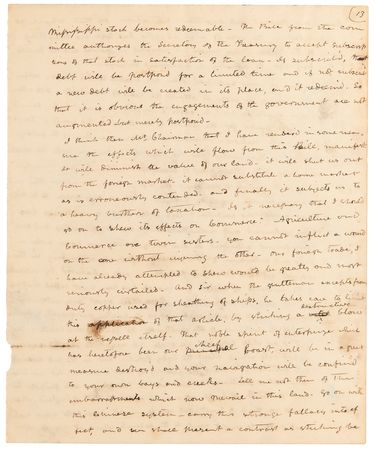 13
Mississippi stock becomes redeemable - The Price from the com
mittee authorizes the Secretary of the Treasury to accept subscrip
tions of that stock in satisfaction of the loan - If subscribed, that
debt will be postponed for a limited time and if not subscribed
a new debt will be created in its place, and it redeemed. So
that it is obvious the engagements of the government are not
augmented but merely postponed -
I think then Mr. Chairman that I have rendered in some meas
ure the effects which will flow from this Bill, manifest
It will diminish the value of our land. it will shut us out
from the foreign market. it cannot substitute a home market
as is erroneously contended. and finally it subjects us to
a heavy burthen of taxation. Is it necessary that I should
go on to shew its effects on Commerce - Agriculture and
Commerce are twin sisters. you cannot inflict a wound
on the one without injuring the other. Our foreign trade, I
have already attempted to shew would be greatly and most
seriously curtailed. And Sir when the gentleman excepts from
duty copper used for sheathing of ships, he takes care to limit
this application of that article, by striking a destructive blow
at the vessel itself. That noble spirit of enterprize which
has heretofore been our chief boast, will be in a great
measure destroyed and your navigation will be confined
to your own bays and creeks. Tell me not then of the
embarrassments which now prevail in this land. Go on with
this Chinese system - carry this strange fallacy into ef
fect, and we shall present a contrast as striking be